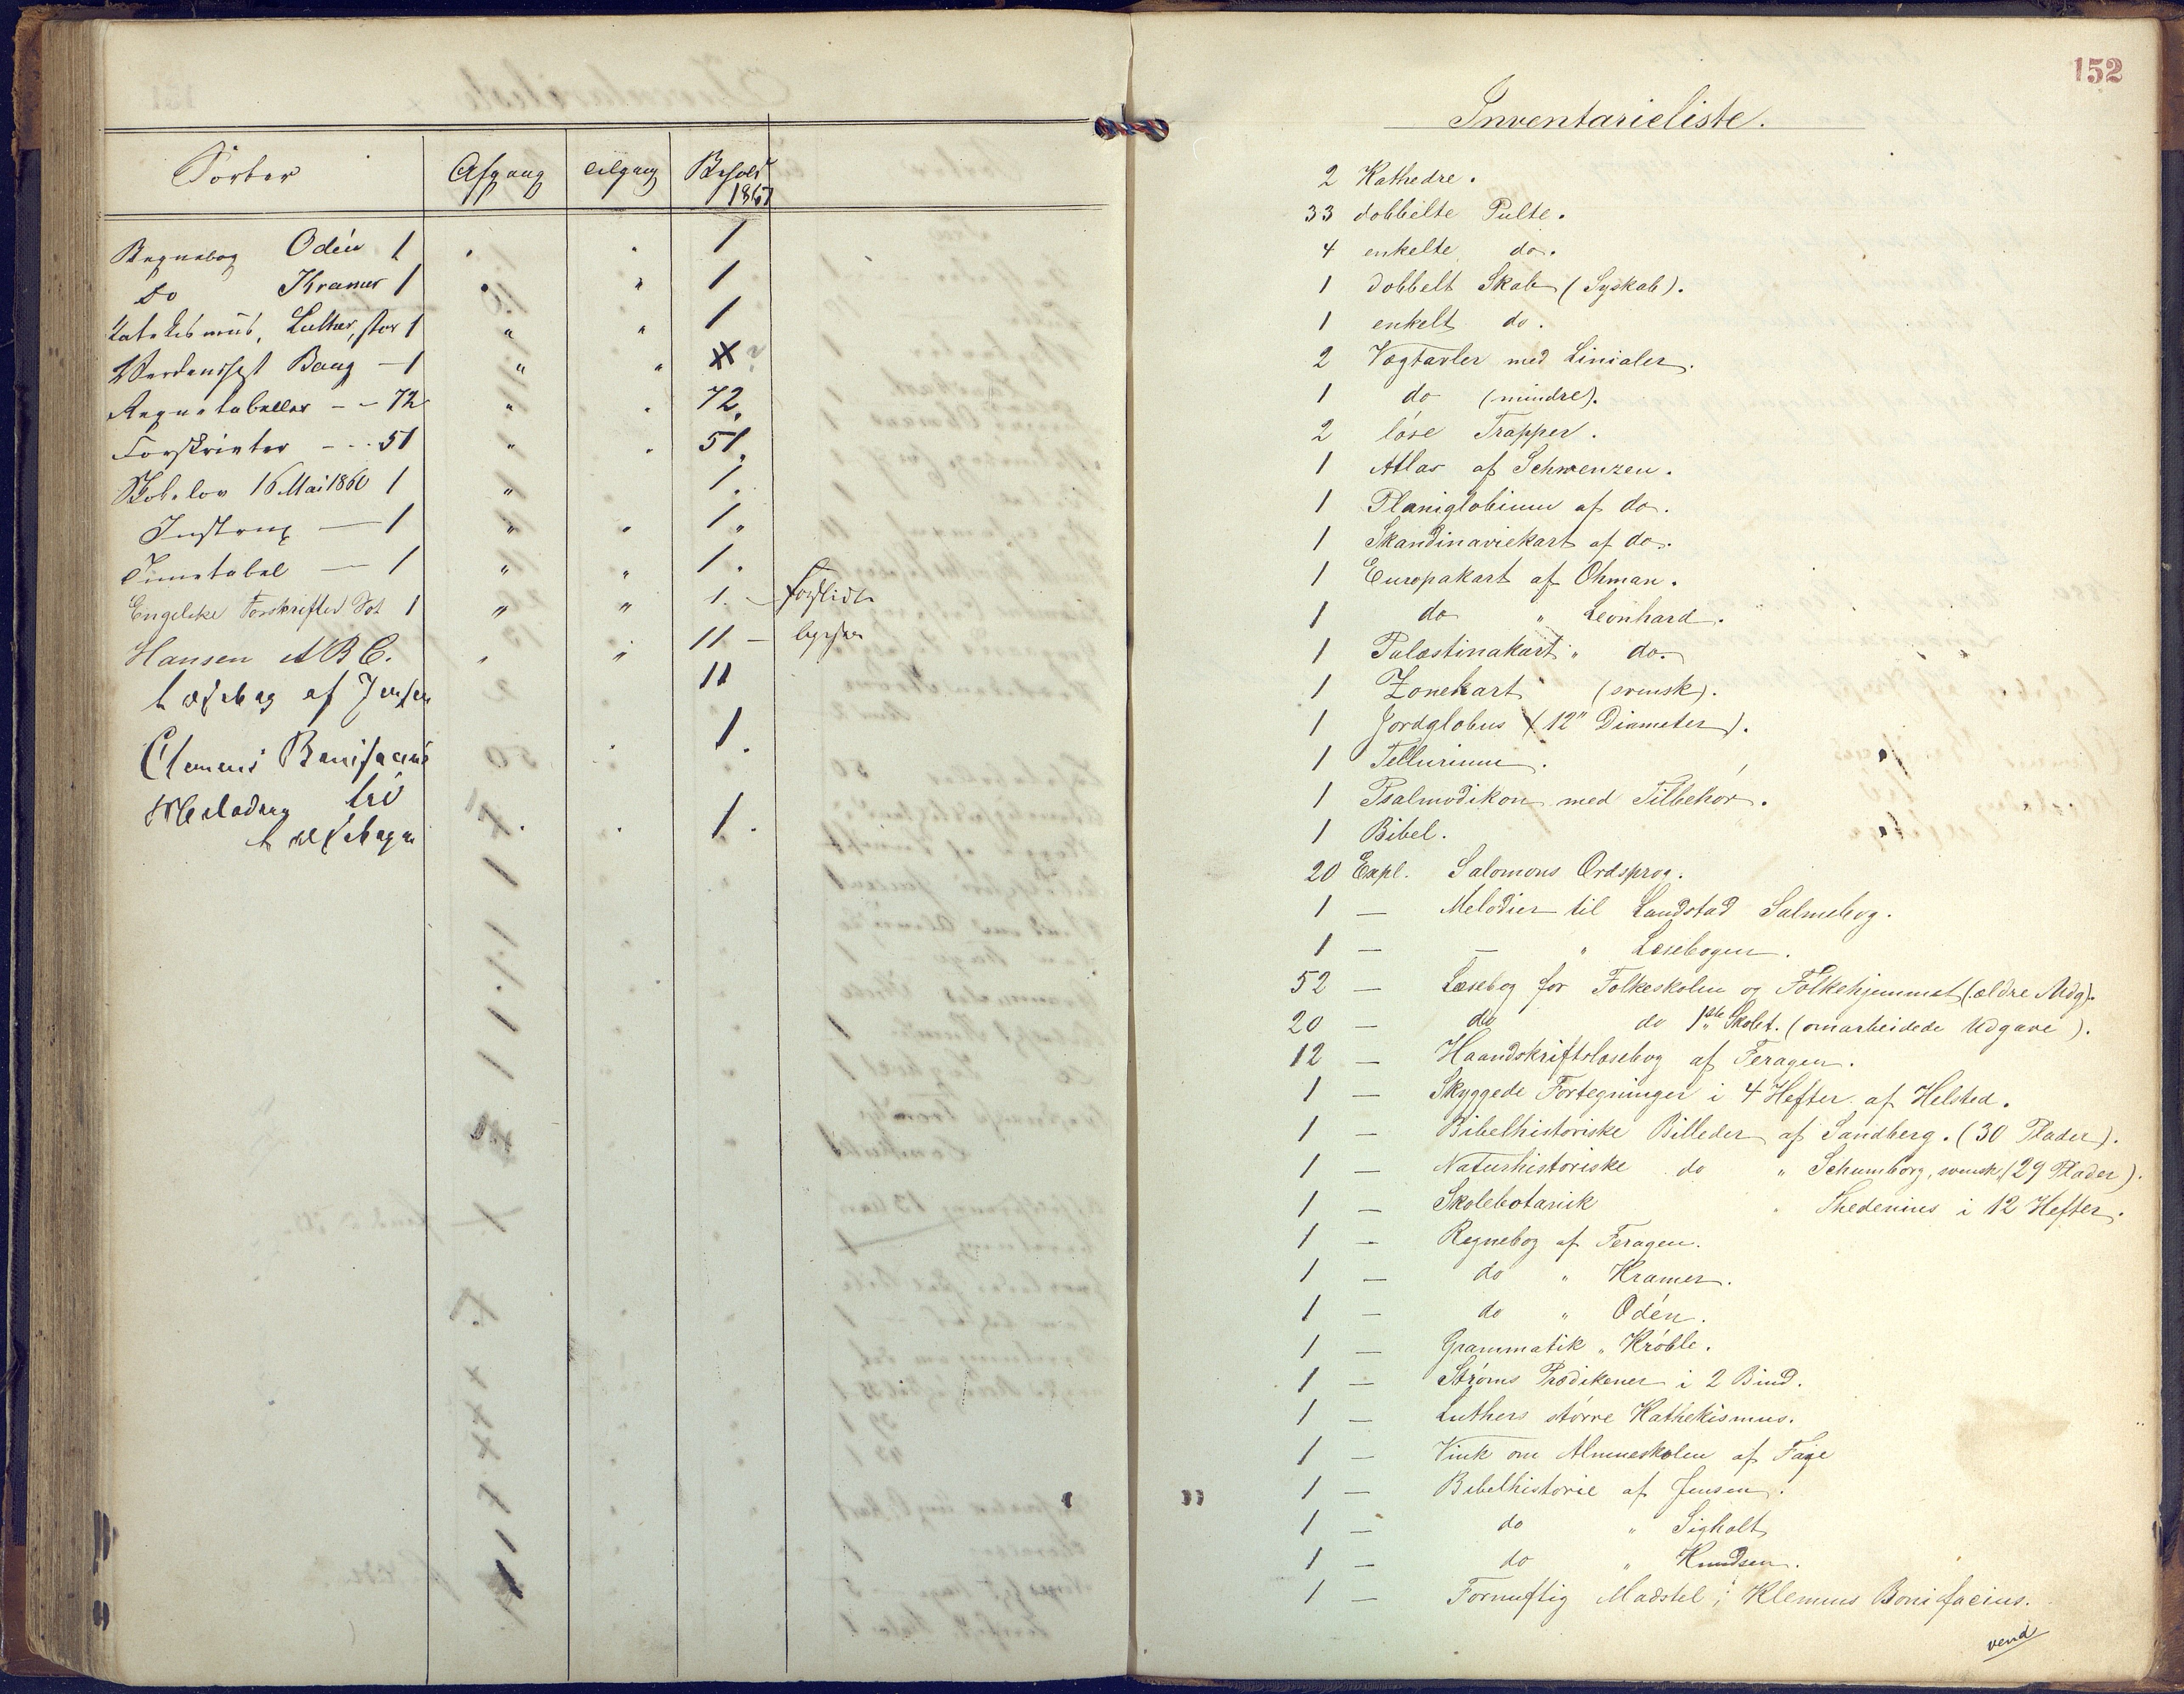 Sorter Afgang Tilgang Behold 1867
Regnebog Odén 1 . . 1
do Kramer 1 . " 1
Katekismus, Luther, stor 1 " " 1
Verdenshist Baug — 1 " "
Regnetabeller — — 72 " . 72.
Forskrivter — . . 51 " . 51.
Skolelov 16 Mai 1860 1 " 1.
Instrux — 1 " . 1 "
Timetabel — 1 " " 1.
Engelske Forskrifter Sot 1 " " 1. —
Hansen A B C. " " 11 —
Læsebog af Jensen 11
Clemens Bonifacius 1.
Melodier til
Læsebogen . . 1.
152
Inventarieliste.
2 Kathedre.
33 dobbelte Pulte.
4 enkelte do.
1 dobbelt Skab (Syskab).
1 enkelt do.
2 Vægtavler med Linialer.
1 do (mindre).
2 löse Trapper.
1 Atlas af Schwenzen.
1 Planiglobium af do.
1 Skandinaviekart af do.
1 Europakart af Ohman.
1 do " Leonhard.
1 Palæstinakart " do.
1 Zonekart (svensk).
1 Jordglobus (12" Diameter).
1 Tellurium.
1 Psalmodikon med Tilbehör.
1 Bibel.
20 Expl. Salomons Ordsprog.
1 — Melodier til Landstad Salmebog.
1 — — " Læsebogen.
52 — Læsebog for Folkeskolen og Folkehjemmet (ældre Udg).
20 — do do 1ste Skolet. (omarbeidede Udgave).
12 — Haandskriftslæsebog af Feragen.
1 — Skyggede Fortegninger i 4 Hefter af Helsted.
1 — Bibelhistoriske Billeder af Sandberg. (30 Plader).
1 — Naturhistoriske do " Schumborg, svensk, (29 Plader).
1 — Skolebotanik " Thedenius i 12 Hefter.
1 — Regnebog af Feragen.
1 — do " Kramer.
1 — do " Odén.
1 — Grammatik " Kröble.
1 — Ströms Prædikener i 2 Bind.
1 — Luthers större Kathekismus.
1 — Vink om Almueskolen af Faye
1 — Bibelhistorie af Jensen.
1 — do " Sigholt
1 — do " Knudsen.
1 — Fornuftig Madstel, Klemens Bonifacius.
vend